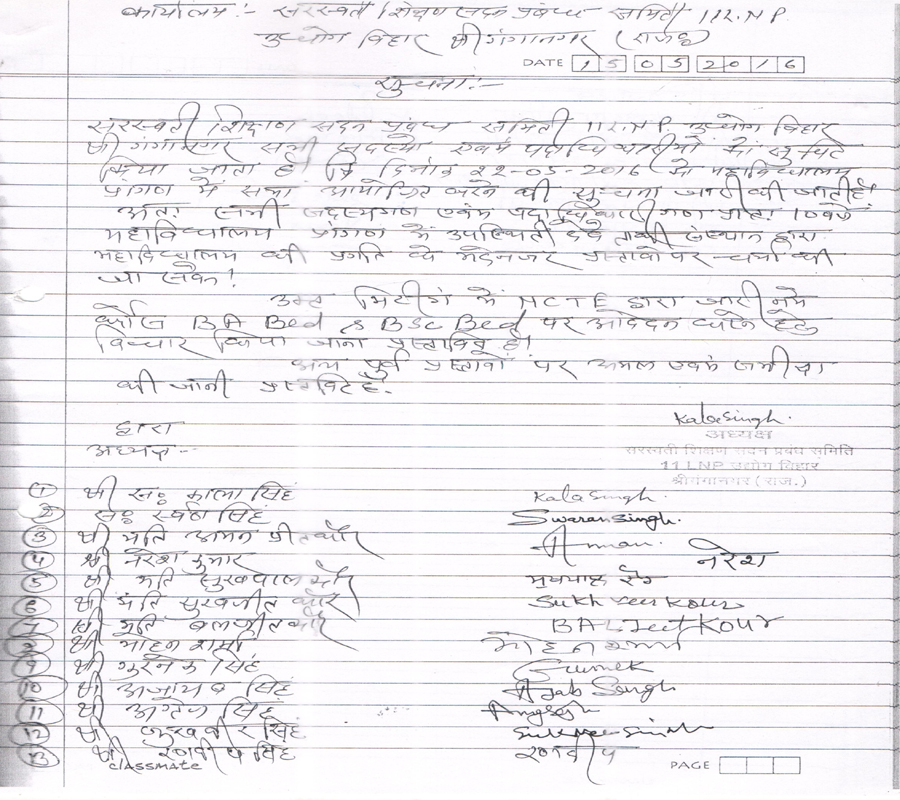 कार्यालय:- सरस्वती शिक्षण सदन प्रबंध समिती 11L.N.P.
उद्योग विहार श्री गंगानगर (राज०)
DATE 15052016
सुचना:-
सरस्वती शिक्षण सदन प्रबंध समिती 11L.N.P. उद्योग विहार
श्री गंगानगर सभी सदस्यो एवमं पदाधिकारीयो को सुचित
किया जाता है। कि दिनांक 22-05-2016 को महाविद्यालय
प्रांगण में सभा आयोजित करने की सुचना जारी की जाती है।
अतः सभी सदस्यगण एवंम पदाधिकारी गण प्रातः 10बजे
महाविद्यालय प्रांगण में उपस्थिती देवे ताकी संस्थान द्वारा
महाविद्यालय की प्रगति के मदेनजर प्रस्तावो पर चर्चा की
जा सके!
उक्त मिटींग में NCTE द्वारा जारी नये
कोर्स BA Bed & BSc Bed पर आवेदन करने हेतु
विचार किया जाना प्रस्तावित है।
अन्य पुर्व प्रस्तावों पर अमल एवमं समीक्षा
की जानी प्रस्तावित है.
Kalasingh.
द्वारा
अध्यक्ष
अध्यक्ष:-
सरस्वती शिक्षण सदन प्रबंध समिति
11 LNP उद्योग विहार
श्रीगंगानगर (राज.)
1 श्री स० काला सिंह Kalasingh.
2 स० स्वर्ण सिंह Swaransingh.
3 श्री मति अमन प्रीत कौर Aman.
4 श्री नरेश कुमार नरेश
5 श्री मति सुखपाल कौर ਸੁਖਪਾਲ ਕੌਰ
6 श्री मति सुखजीत कौर Sukh Jeet Kour
7 श्री मति बलजीत कौर BALJeet KOUR
8 श्री मोहन शर्मा मोहन शर्मा
9 श्री गुरमेक सिंह Gurmek
10 श्री अजायब सिंह Ajab Singh
11 श्री अंग्रेज सिंह Angrejh
12 श्री सुखवीर सिंह Sukhveer Singh
13 श्री रणदीप सिंह रणदीप
CLASSMATE
PAGE